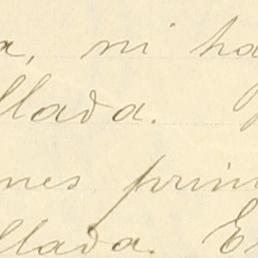 a, ni ha
llada.
nes prin
llada. E